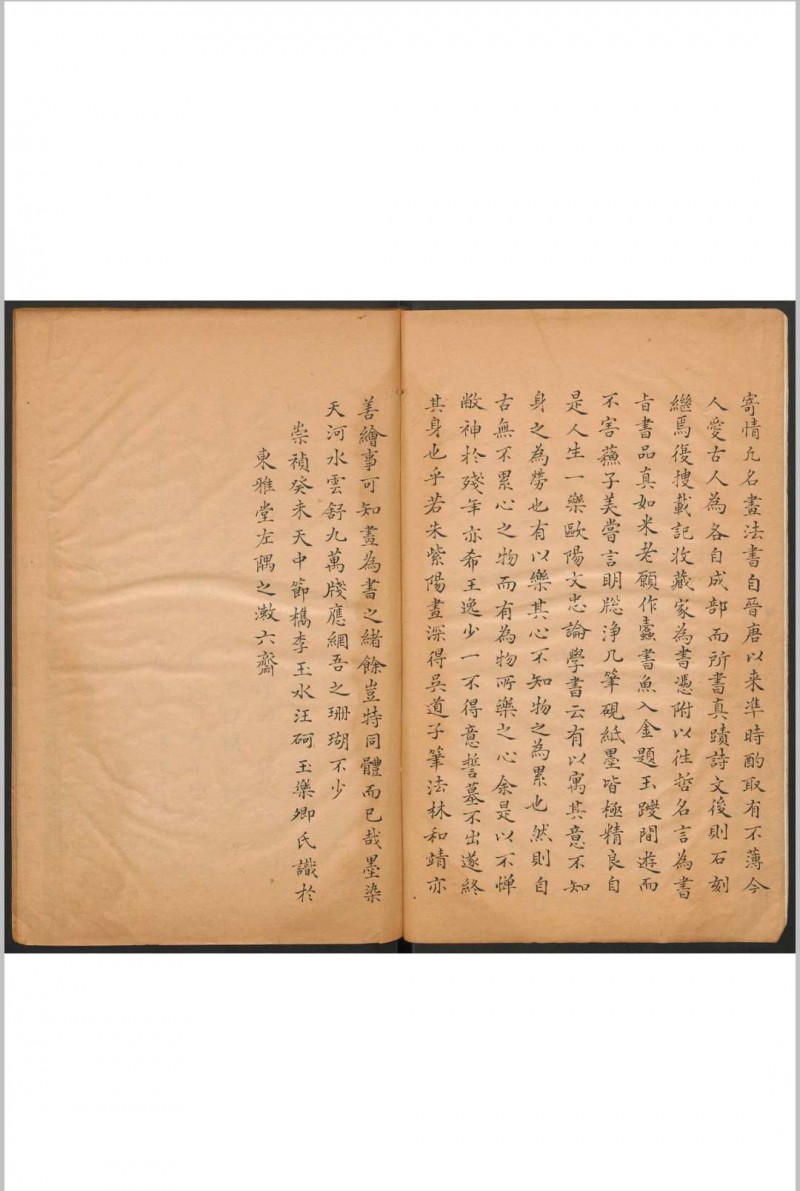 寄情凢名畫法書自晉唐以来準時酌取有不薄今
人愛古人為各自成部而所書真蹟詩文後則石刻
繼焉復搜載記收藏家為書憑附以往哲名言為書
旨書品真如米老願作蠧書魚入金題玉躞間遊而
不害蘓子美嘗言明牎净几筆硯紙墨皆極精良自
是人生一樂歐陽文忠論學書云有以寓其意不知
身之為勞也有以樂其心不知物之為累也然則自
古無不累心之物而有為物所樂之心余是以不惮
敝神於殘年亦希王逸少一不得意誓墓不出遂終
其身也乎若朱紫陽畫深得吳道子筆法林和靖亦
善繪事可知畫為書之緒餘豈特同體而已哉墨染
天河水雲舒九萬牋應網吾之珊瑚不少
崇禎癸未天中節檇李玉水汪砢玉樂卿氏識於
東雅堂左隅之漱六齋